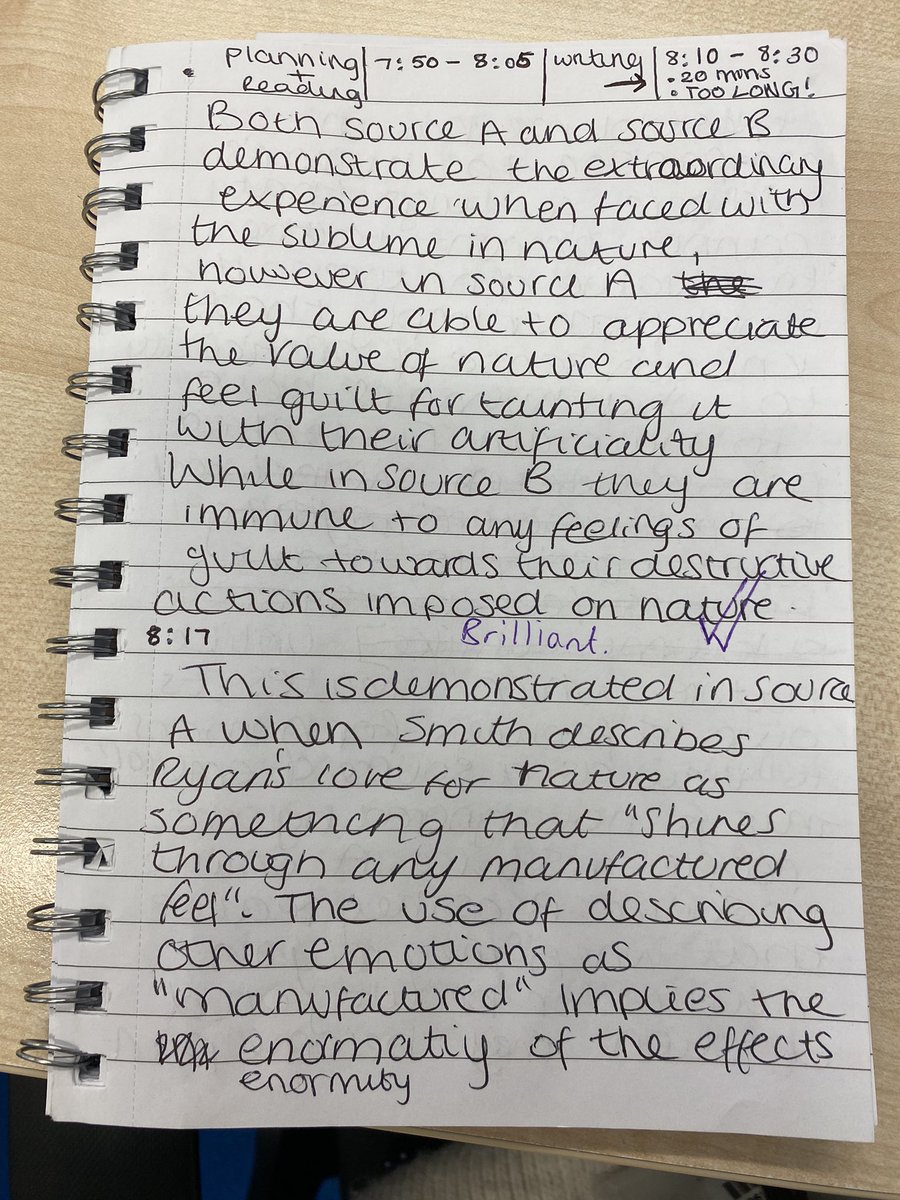 • Planning + Reading | 7:50 - 8:05 | writing → | 8:10 - 8:30
• 20 mins
• TOO LONG!
Both source A and source B
demonstrate the extraordinary
experience when faced with
the sublime in nature,
however in source A the
they are able to appreciate
the value of nature and
feel guilt for taunting it
with their artificiality
While in source B they are
immune to any feelings of
guilt towards their destructive
actions imposed on nature.
8:17 Brilliant.
This is demonstrated in source
A when Smith describes
Ryan's love for nature as
something that "shines
through any manufactured
feel". The use of describing
other emotions as
"manufactured" implies the
enormatiy of the effects
enormity